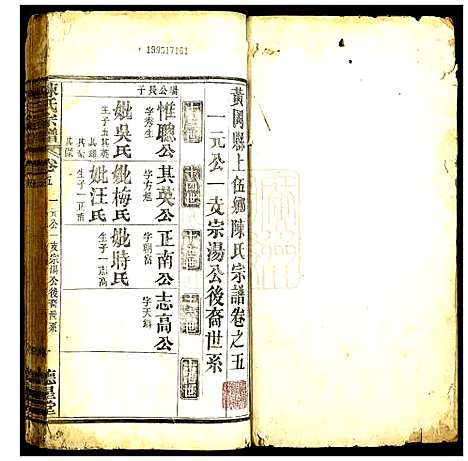 199517161
黃岡縣上伍鄉陳氏宗譜卷之五
一元公一支宗湯公後裔世系
公長子
惟聰公
字秀生
妣吳氏
生子五其英
其雄
其傑
其英公
字方旭
妣梅氏
妣汪氏
生子一正南
正南公
字朝富
妣時氏
生子一志高
志高公
字天錫
陳氏宗譜
卷五
一元公一支宗湯公後裔世系
德星堂